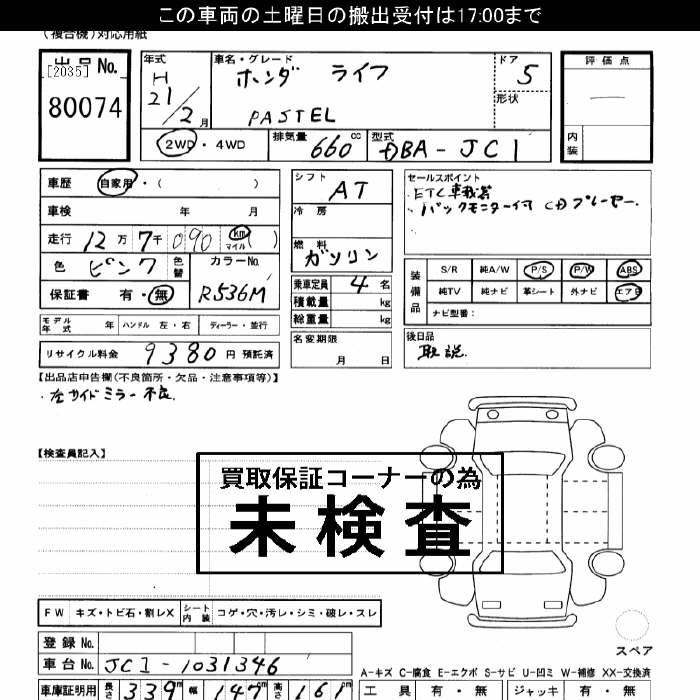 この車両の土曜日の搬出受付は17:00まで
(複合機)対応用紙
出品 No.
[2035]
80074
年式 H 21/2月
車名・グレード ホンダ ライフ
PASTEL
ドア 5
形状
評価点
内装
2WD・4WD 排気量 660cc 型式 DBA-JC1
車歴 自家用・( )
車検 年 月
走行 12万7千090 km マイル ( )
色 ピンク 色替 カラーNo. R536M
保証書 有・無
シフト AT
冷房
燃料 ガソリン
乗車定員 4名
積載量 kg
総重量 kg
セールスポイント
ETC車載器
バックモニター付 CDプレーヤー.
装備品 S/R 純A/W P/S P/W ABS
純TV 純ナビ 革シート 外ナビ エアB
ナビ型番:
モデル年式 年 ハンドル 左・右 ディーラー・並行
名変期限 月 日
後日品
取説.
リサイクル料金 9380 円 預託済
【出品店申告欄(不良箇所・欠品・注意事項等)】
・左サイドミラー不良.
【検査員記入】
買取保証コーナーの為
未検査
FW キズ・トビ石・割レX シート内装 コゲ・穴・汚レ・シミ・破レ・スレ
登録 No.
車台 No. JC1-1031346
スペア
A-キズ C-腐食 E-エクボ S-サビ U-凹ミ W-補修 XX-交換済
車庫証明用 長さ 339cm 幅 147cm 高さ 161cm
工具 有・無 ジャッキ 有・無